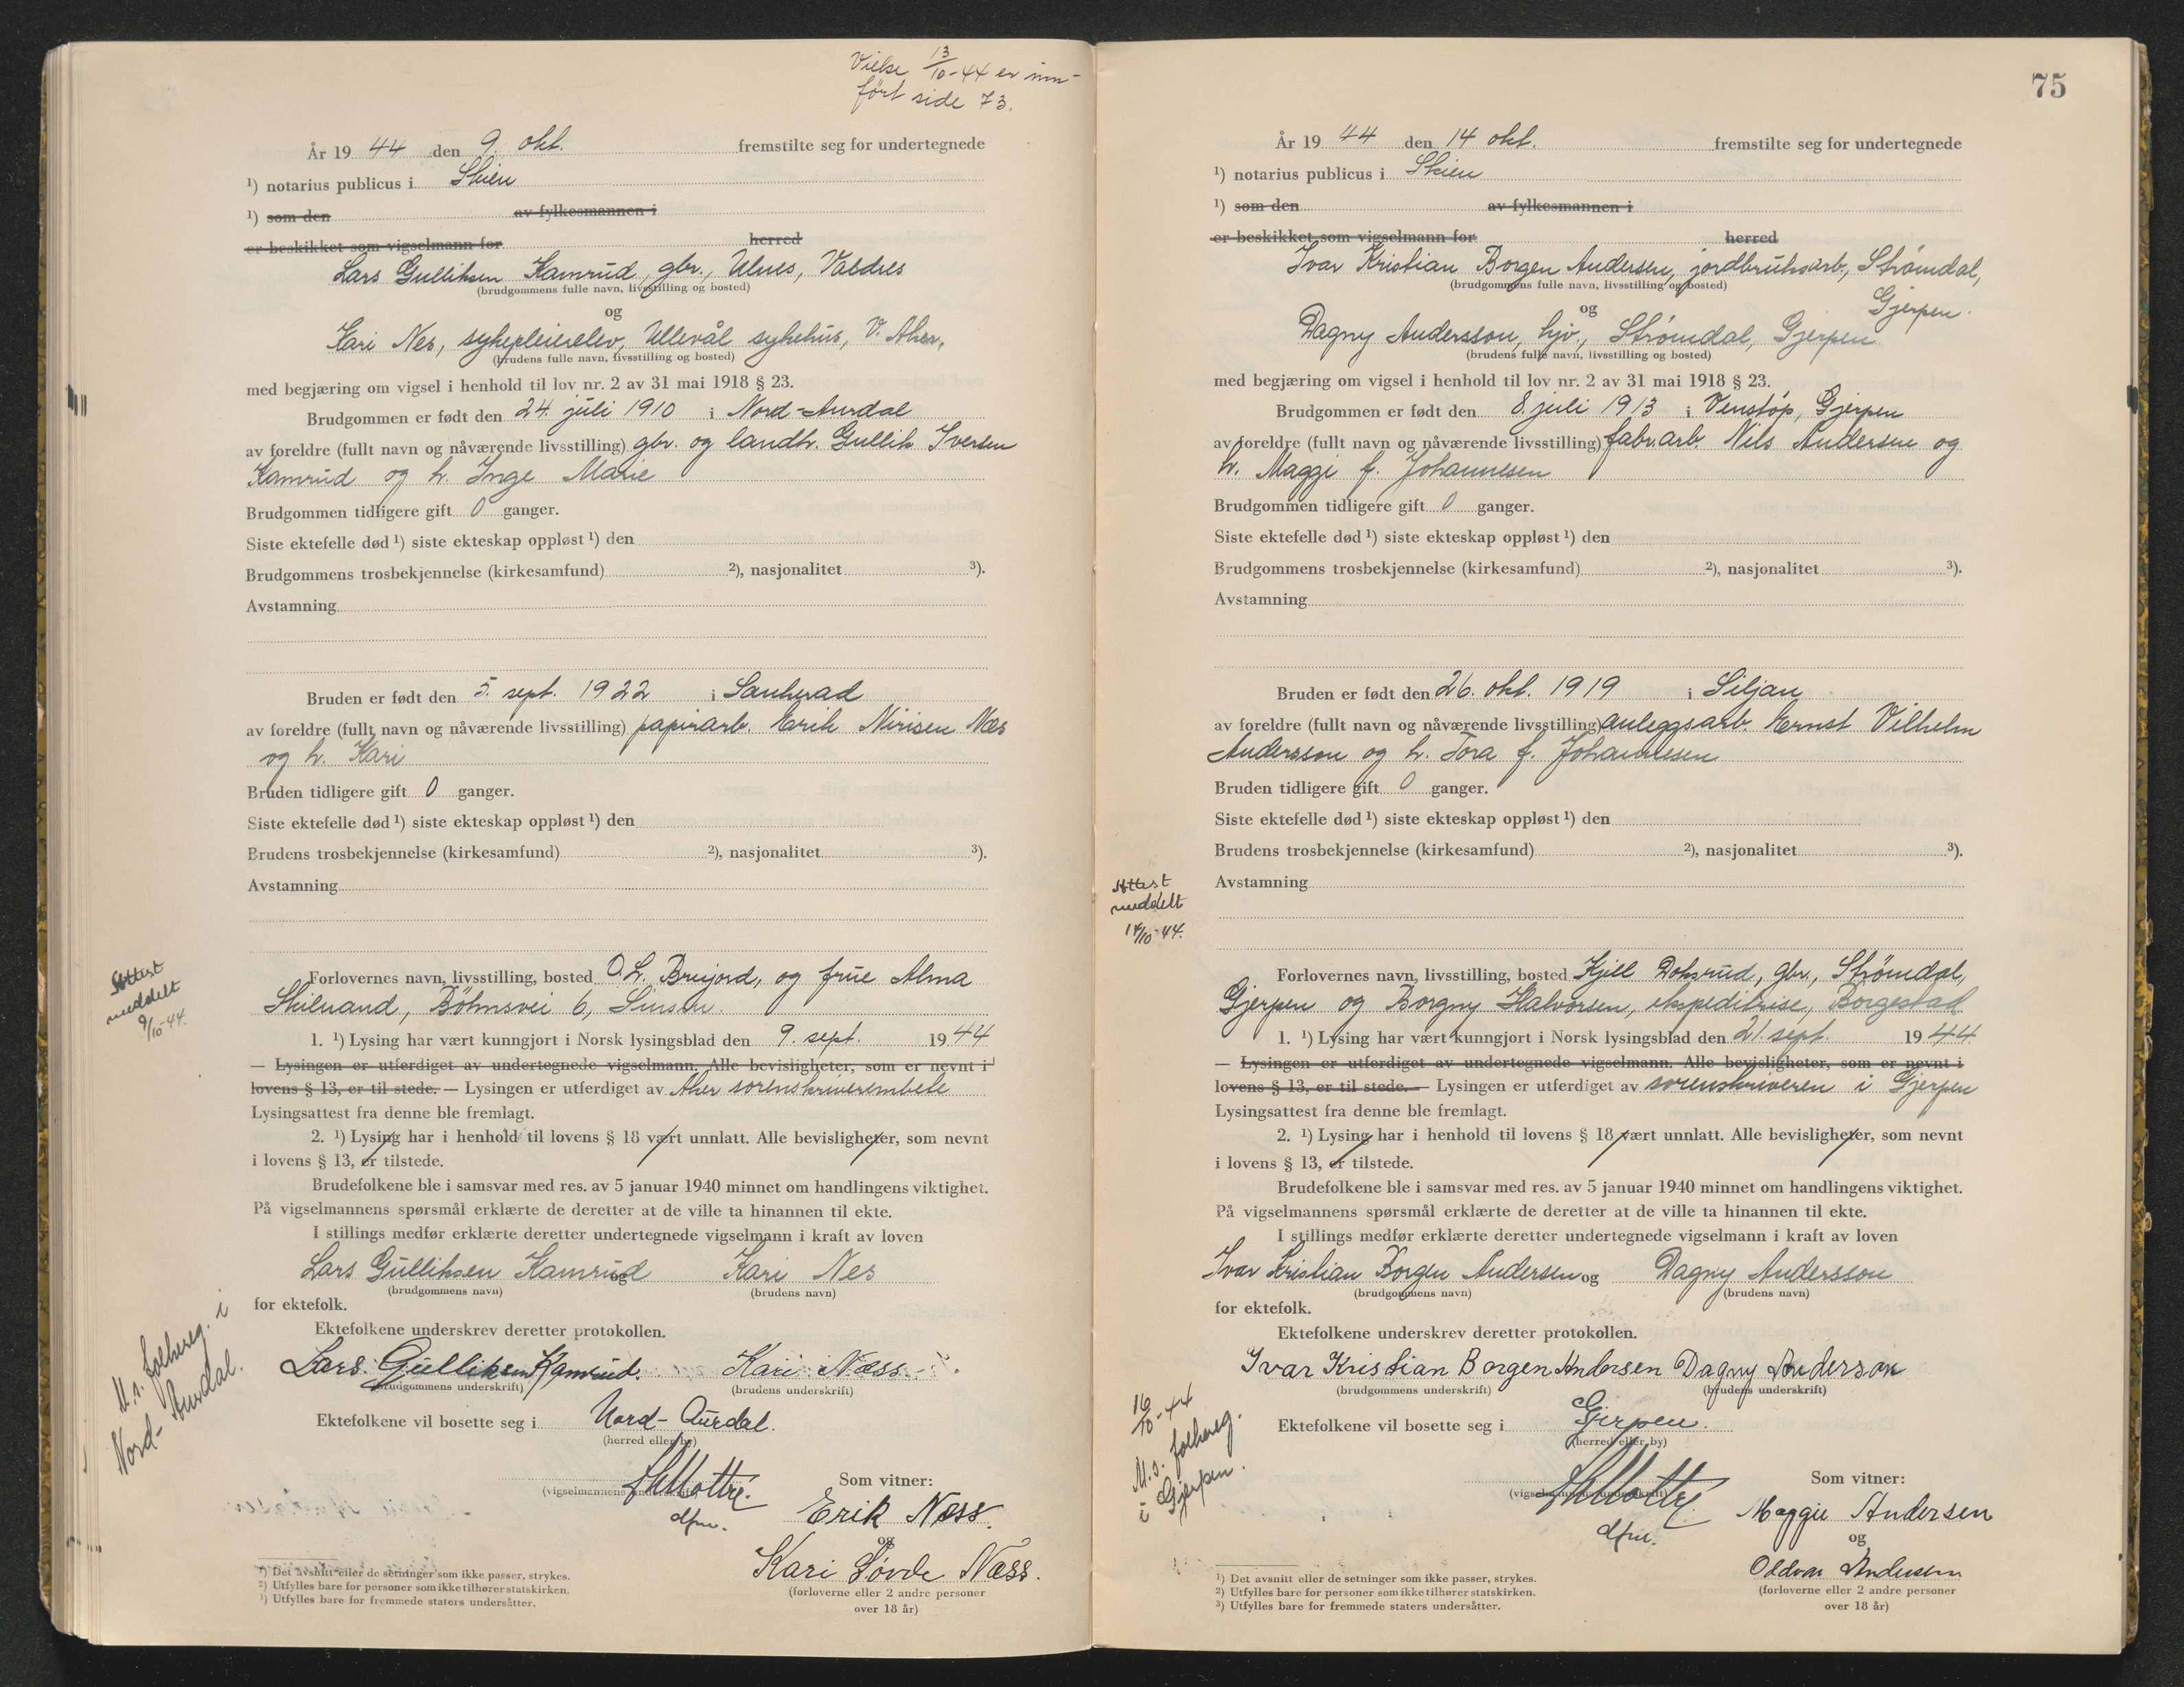 Vielse 13/10-44 er inn-
ført side 73.
År 19 44 den 9. okt. fremstilte seg for undertegnede
¹) notarius publicus i Skien
¹) som den av fylkesmannen i
er beskikket som vigselmann for herred
Lars Gulliksen Kamrud, gbr., Ulnes, Valdres
(brudgommens fulle navn, livsstilling og bosted)
og
Kari Nes, sykepleierelev, Ullevål sykehus, V. Aker,
(brudens fulle navn, livsstilling og bosted)
med begjæring om vigsel i henhold til lov nr. 2 av 31 mai 1918 § 23.
Brudgommen er født den 24. juli 1910 i Nord-Aurdal
av foreldre (fullt navn og nåværende livsstilling) gbr. og landh. Gullik Iversen
Kamrud og h. Inge Marie
Brudgommen tidligere gift 0 ganger.
Siste ektefelle død ¹) siste ekteskap oppløst ¹) den
Brudgommens trosbekjennelse (kirkesamfund) ²), nasjonalitet ³).
Avstamning
Bruden er født den 5. sept. 1922 i Sauherad
av foreldre (fullt navn og nåværende livsstilling) papirarb. Erik Nirisen Nes
og h. Kari
Bruden tidligere gift 0 ganger.
Siste ektefelle død ¹) siste ekteskap oppløst ¹) den
Brudens trosbekjennelse (kirkesamfund) ²), nasjonalitet ³).
Avstamning
Attest
meddelt
9/10-44.
Forlovernes navn, livsstilling, bosted O. L. Brujord, og frue Alma
Skilnand, Bøhmsvei 6, Sinsen.
1. ¹) Lysing har vært kunngjort i Norsk lysingsblad den 9. sept. 1944
— Lysingen er utferdiget av undertegnede vigselmann. Alle bevisligheter, som er nevnt i
lovens § 13, er til stede. — Lysingen er utferdiget av Aker sorenskriverembete
Lysingsattest fra denne ble fremlagt.
2. ¹) Lysing har i henhold til lovens § 18 vært unnlatt. Alle bevisligheter, som nevnt
i lovens § 13, er tilstede.
Brudefolkene ble i samsvar med res. av 5 januar 1940 minnet om handlingens viktighet.
På vigselmannens spørsmål erklærte de deretter at de ville ta hinannen til ekte.
I stillings medfør erklærte deretter undertegnede vigselmann i kraft av loven
Lars Gulliksen Kamrud og Kari Nes
(brudgommens navn) (brudens navn)
for ektefolk.
Ektefolkene underskrev deretter protokollen.
Lars Gulliksen Kamrud. Kari Næss.
(brudgommens underskrift) (brudens underskrift)
M. s. folkereg. i
Nord-Aurdal.
Ektefolkene vil bosette seg i Nord-Aurdal.
(herred eller by)
Som vitner:
(vigselmannens underskrift)
dfm.
Erik Næss.
og
Kari Søvde Næss.
(forloverne eller 2 andre personer
over 18 år)
¹) Det avsnitt eller de setninger som ikke passer, strykes.
²) Utfylles bare for personer som ikke tilhører statskirken.
³) Utfylles bare for fremmede staters undersåtter.
75
År 19 44 den 14 okt. fremstilte seg for undertegnede
¹) notarius publicus i Skien
¹) som den av fylkesmannen i
er beskikket som vigselmann for herred
Ivar Kristian Borgen Andersen, jordbruksarb., Strømdal,
(brudgommens fulle navn, livsstilling og bosted)
Gjerpen.
og
Dagny Andersson, hjv., Strømdal, Gjerpen
(brudens fulle navn, livsstilling og bosted)
med begjæring om vigsel i henhold til lov nr. 2 av 31 mai 1918 § 23.
Brudgommen er født den 8. juli 1913 i Venstøp, Gjerpen
av foreldre (fullt navn og nåværende livsstilling) fabr.arb. Nils Andersen og
h. Maggi f. Johannesen
Brudgommen tidligere gift 0 ganger.
Siste ektefelle død ¹) siste ekteskap oppløst ¹) den
Brudgommens trosbekjennelse (kirkesamfund) ²), nasjonalitet ³).
Avstamning
Bruden er født den 26. okt. 1919 i Siljan
av foreldre (fullt navn og nåværende livsstilling) anleggsarb. Ernst Vilhelm
Andersson og h. Tora f. Johannesen
Bruden tidligere gift 0 ganger.
Siste ektefelle død ¹) siste ekteskap oppløst ¹) den
Brudens trosbekjennelse (kirkesamfund) ²), nasjonalitet ³).
Avstamning
Attest
meddelt
14/10-44.
Forlovernes navn, livsstilling, bosted Kjell Doksrud, gbr., Strømdal,
Gjerpen og Borgny Halvorsen, ekspeditrise, Borgestad
1. ¹) Lysing har vært kunngjort i Norsk lysingsblad den 21. sept. 1944
— Lysingen er utferdiget av undertegnede vigselmann. Alle bevisligheter, som er nevnt i
lovens § 13, er til stede. — Lysingen er utferdiget av sorenskriveren i Gjerpen
Lysingsattest fra denne ble fremlagt.
2. ¹) Lysing har i henhold til lovens § 18 vært unnlatt. Alle bevisligheter, som nevnt
i lovens § 13, er tilstede.
Brudefolkene ble i samsvar med res. av 5 januar 1940 minnet om handlingens viktighet.
På vigselmannens spørsmål erklærte de deretter at de ville ta hinannen til ekte.
I stillings medfør erklærte deretter undertegnede vigselmann i kraft av loven
Ivar Kristian Borgen Andersen og Dagny Andersson
(brudgommens navn) (brudens navn)
for ektefolk.
Ektefolkene underskrev deretter protokollen.
Ivar Kristian Borgen Andersen Dagny Anderson
(brudgommens underskrift) (brudens underskrift)
16/10-44
M. s. folkereg.
i Gjerpen.
Ektefolkene vil bosette seg i Gjerpen.
(herred eller by)
Som vitner:
(vigselmannens underskrift)
dfm.
Maggie Andersen
og
Oldvar Andersen
(forloverne eller 2 andre personer
over 18 år)
¹) Det avsnitt eller de setninger som ikke passer, strykes.
²) Utfylles bare for personer som ikke tilhører statskirken.
³) Utfylles bare for fremmede staters undersåtter.